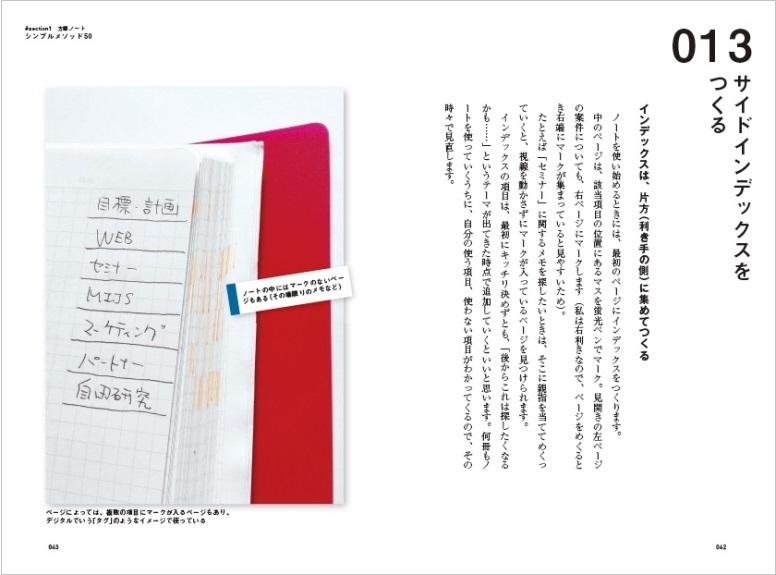 013
サイドインデックスを
つくる
インデックスは、片方(利き手の側)に集めてつくる
ノートを使い始めるときには、最初のページにインデックスをつくります。
中のページは、該当項目の位置にあるマスを蛍光ペンでマーク。見開きの左ページ
の案件についても、右ページにマークします(私は右利きなので、ページをめくると
き右端にマークが集まっていると見やすいため)。
たとえば「セミナー」に関するメモを探したいときは、そこに親指を当ててめくっ
ていくと、視線を動かさずにマークが入っているページを見つけられます。
インデックスの項目は、最初にキッチリ決めずとも、「後からこれは探したくなる
かも……」というテーマが出てきた時点で追加していくといいと思います。何冊もノ
ートを使っていくうちに、自分の使う項目、使わない項目がわかってくるので、その
時々で見直します。
042
#section1 方眼ノート
シンプルメソッド50
目標・計画
WEB
セミナー
MIJS
マーケティング
パートナー
自由研究
ノートの中にはマークのないペー
ジもある(その場限りのメモなど)
ページによっては、複数の項目にマークが入るページもあり、
デジタルでいう「タグ」のようなイメージで使っている
043